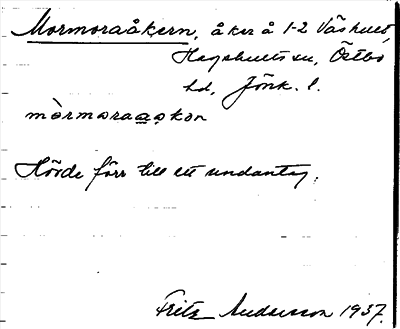 Mormoraåkern, åker å 1-2 Våshult,
Hagshults sn, Östbo
hd, Jönk. l.
mòrmoraaokon
Hörde förr till ett undantag.
Fritz Andersson 1937.